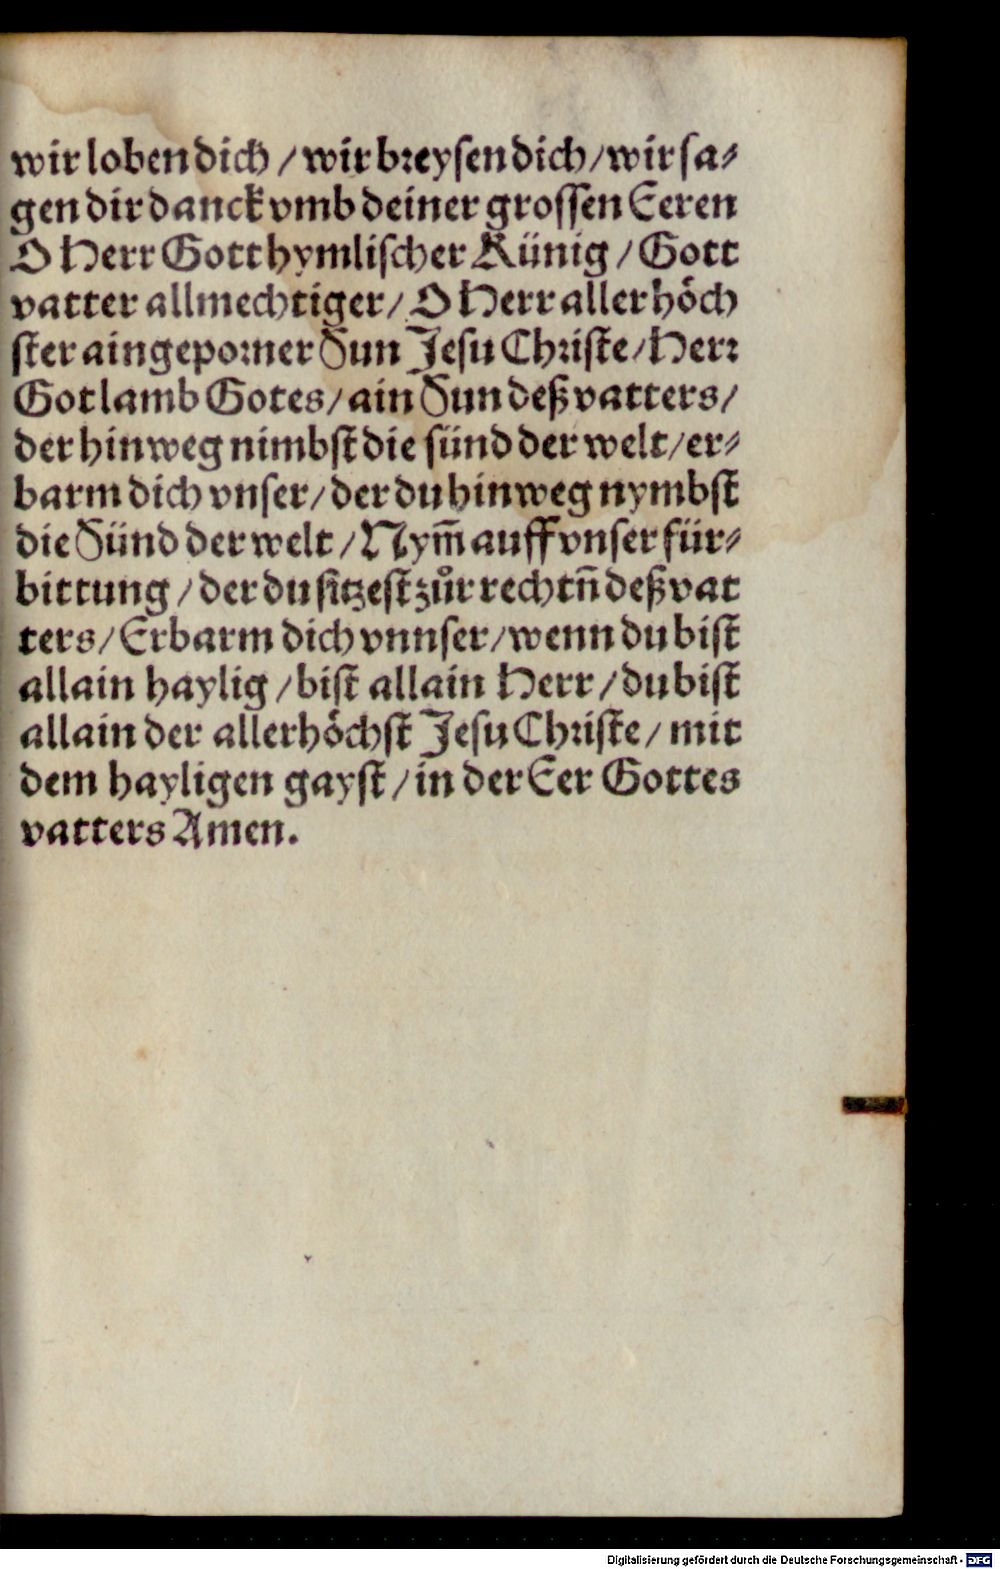 wir loben dich / wir breysen dich / wir sa⸗
gen dir danck vmb deiner grossen Eeren
O Herr Gott hymlischer Künig / Gott
vatter allmechtiger / O Herr aller höch
ster aingeporner Sun Jesu Christe / Herr
Got lamb Gotes / ain Sun deß vatters /
der hinweg nimbst die sünd der welt / er⸗
barm dich vnser / der du hinweg nymbst
die Sünd der welt / Nym̃ auff vnser für⸗
bittung / der du sitzest zůr rechtñ deß vat
ters / Erbarm dich vnnser / wenn du bist
allain haylig / bist allain Herr / du bist
allain der allerhöchst Jesu Christe / mit
dem hayligen gayst / in der Eer Gottes
vatters Amen.
Digitalisierung gefördert durch die Deutsche Forschungsgemeinschaft - DFG